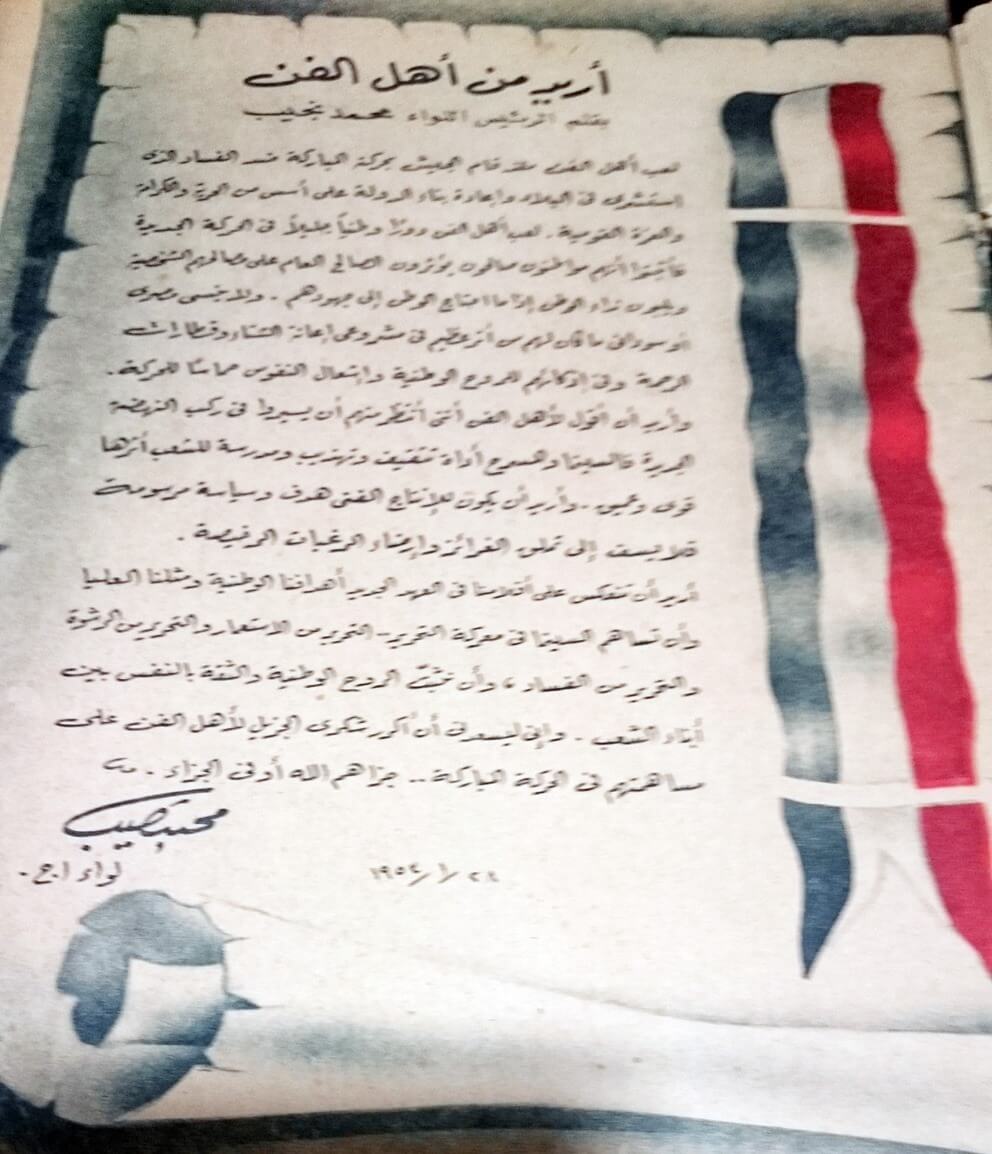 أريد من أهل الفن
بقلم الرئيس اللواء محمد نجيب
لعب أهل الفن منذ قام الجيش بحركته المباركة ضد الفساد الذى
استشرى فى البلاد وإعادة بناء الدولة على أسس من الحرية والكرامة
والعزة القومية . لعب أهل الفن دورًا وطنياً جليلاً فى الحركة الجديدة
فأثبتوا أنهم مواطنون صالحون يؤثرون الصالح العام على مصالحهم الشخصية
ويلبون نداء الوطن إذا ما احتاج الوطن إلى جهودهم . ولا ينسى مصرى
أو سودانى ما كان لهم من أثر عظيم فى مشروعى إعانة الشتاء وقطارات
الرحمة وفى إذكائهم للروح الوطنية وإشعال النفوس حماسًا للحركة .
وأريد أن أقول لأهل الفن أننى أنتظر منهم أن يسيروا فى ركب النهضة
الجديدة فالسينما والمسرح أداة تثقيف وتهذيب ومدرسة للشعب أثرها
قوى وعميق . وأريد أن يكون للإنتاج الفنى هدف وسياسة مرسومة
فلا يسف إلى تملق الغرائز وإرضاء الرغبات الرخيصة .
أريد أن تنعكس على أفلامنا فى العهد الجديد أهدافنا الوطنية ومثلنا العليا
وأن تساهم السينما فى معركة التحرير - التحرير من الاستعمار والتحرير من الرشوة
والتحرير من الفساد ، وأن تثبت الروح الوطنية والثقة بالنفس بين
أبناء الشعب . وإنى ليسعدنى أن أكرر شكرى الجزيل لأهل الفن على
مساهمتهم فى الحركة المباركة .. جزاهم الله أوفى الجزاء .
محمد نجيب
لواء ا.ح.